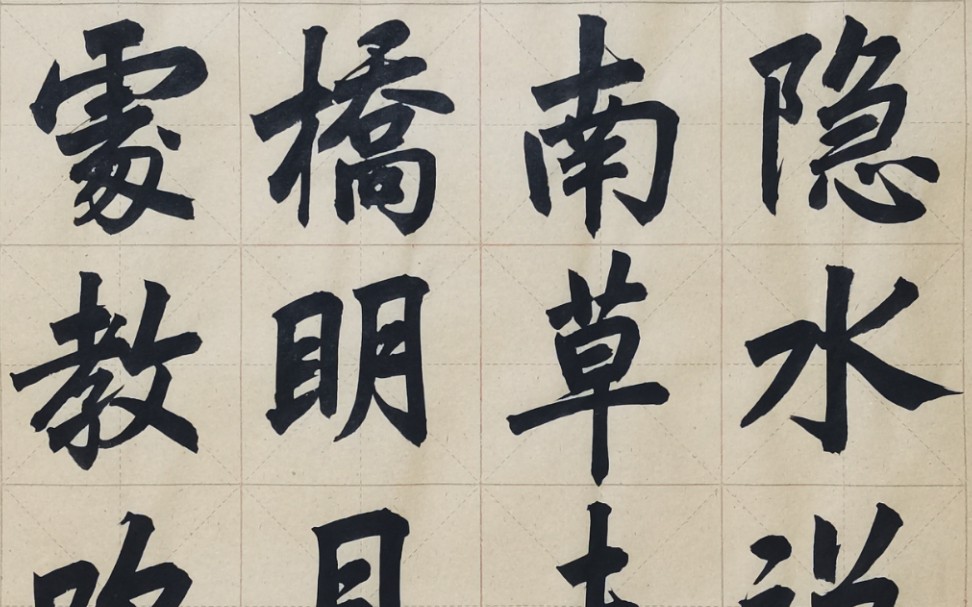 隐水
南草
橋眀
處教